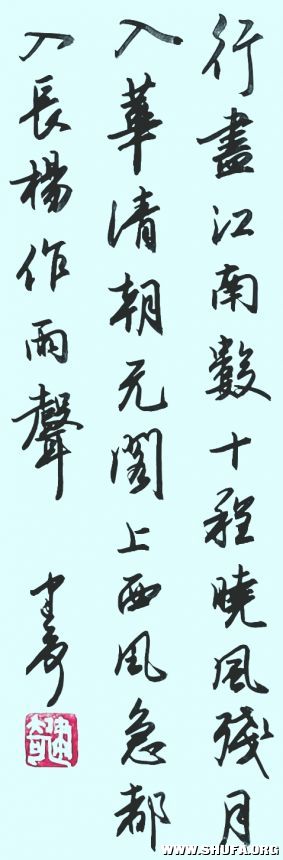 行盡江南數十程曉風殘月
入華清朝元閣上西風急都
入長楊作雨聲
WWW.SHUFA.ORG